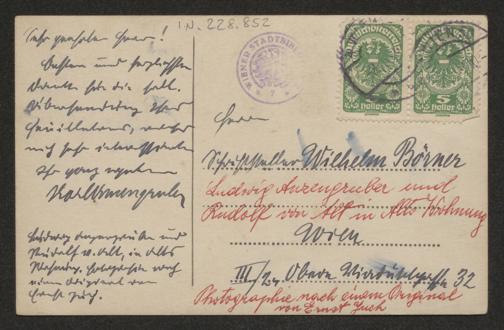 I.N. 228.852
Sehr geehrter Herr!
Besten und herzlichsten
Dank für die frdl.
Übersendung Ihres
Feuilletons, welches
mich sehr interessierte
Ihr ganz ergebener
WIENER STADTBIBL
7
Deutschösterreich
5
Heller
Deutschösterreich
5
Heller
Herrn
Schriftsteller Wilhelm Börner
Ludwig Anzengruber und
Rudolf von Alt in Alts Wohnung
Wien
III/2, Obere Viaduktgasse 32
Photographie nach einem Original
von Ernst Juch
Ludwig Anzengruber und
Rudolf v. Alt, in Alts
Wohnung. Photographie nach
einem Original von
Ernst Juch.